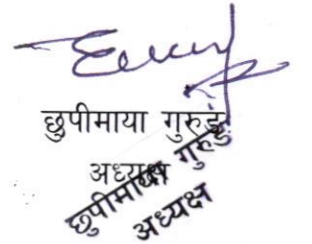 छुपीमाया गुरुङ्ग
अध्यक्ष
छुपीमाया गुरुङ्ग
अध्यक्ष